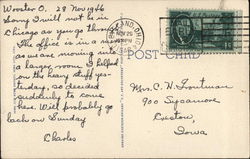 Wooster O. 28 Nov 1946
Sorry I will not be in
Chicago as you go through.
The office is in a mess
as we are moving into
a larger room. I helped
on the heavy stuff yes-
terday, so decided
suddenly to come
here. Will probably go
back on Sunday
Charles
POST CARD
Mrs. C. H. Troutman
900 Sycamore
Creston,
Iowa